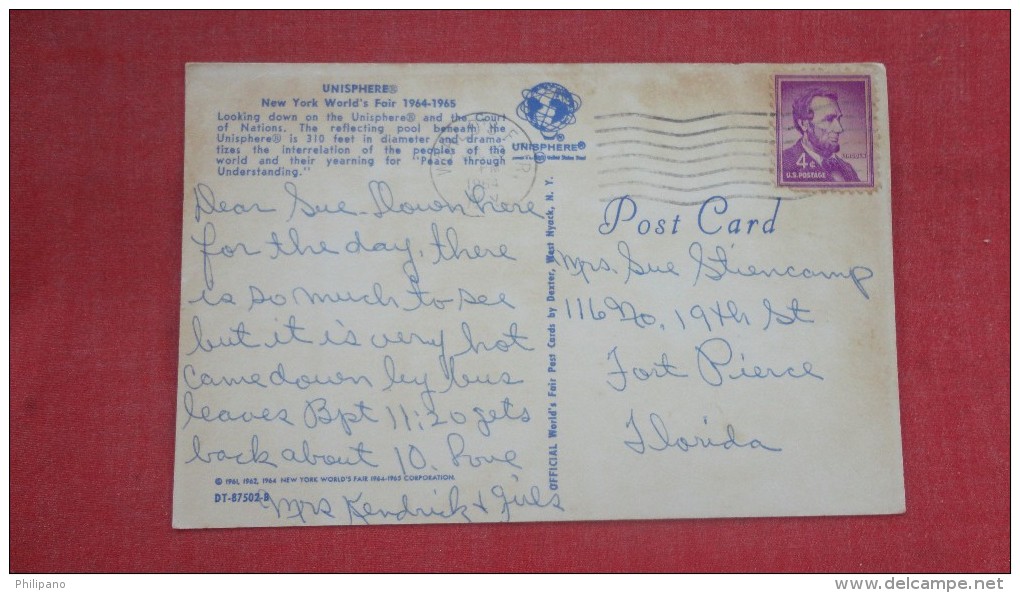 UNISPHERE®
New York World's Fair 1964-1965
Looking down on the Unisphere® and the Court
of Nations. The reflecting pool beneath the
Unisphere® is 310 feet in diameter and drama-
tizes the interrelation of the peoples of the
world and their yearning for "Peace through
Understanding."
UNISPHERE®
Dear Sue - Down here
for the day, there
is so much to see
but it is very hot
came down by bus
leaves Bpt 11:20 gets
back about 10. Love
Mrs Kendrick &
© 1961, 1962, 1964 NEW YORK WORLD'S FAIR 1964-1965 CORPORATION.
DT-87502-B
OFFICIAL World's Fair Post Cards by Dexter, West Nyack, N. Y.
LINCOLN
4¢
U.S. POSTAGE
Post Card
Mrs. Sue Stiencamp
116 No. 19th St
Fort Pierce
Florida
Philipano
www.delcampe.net